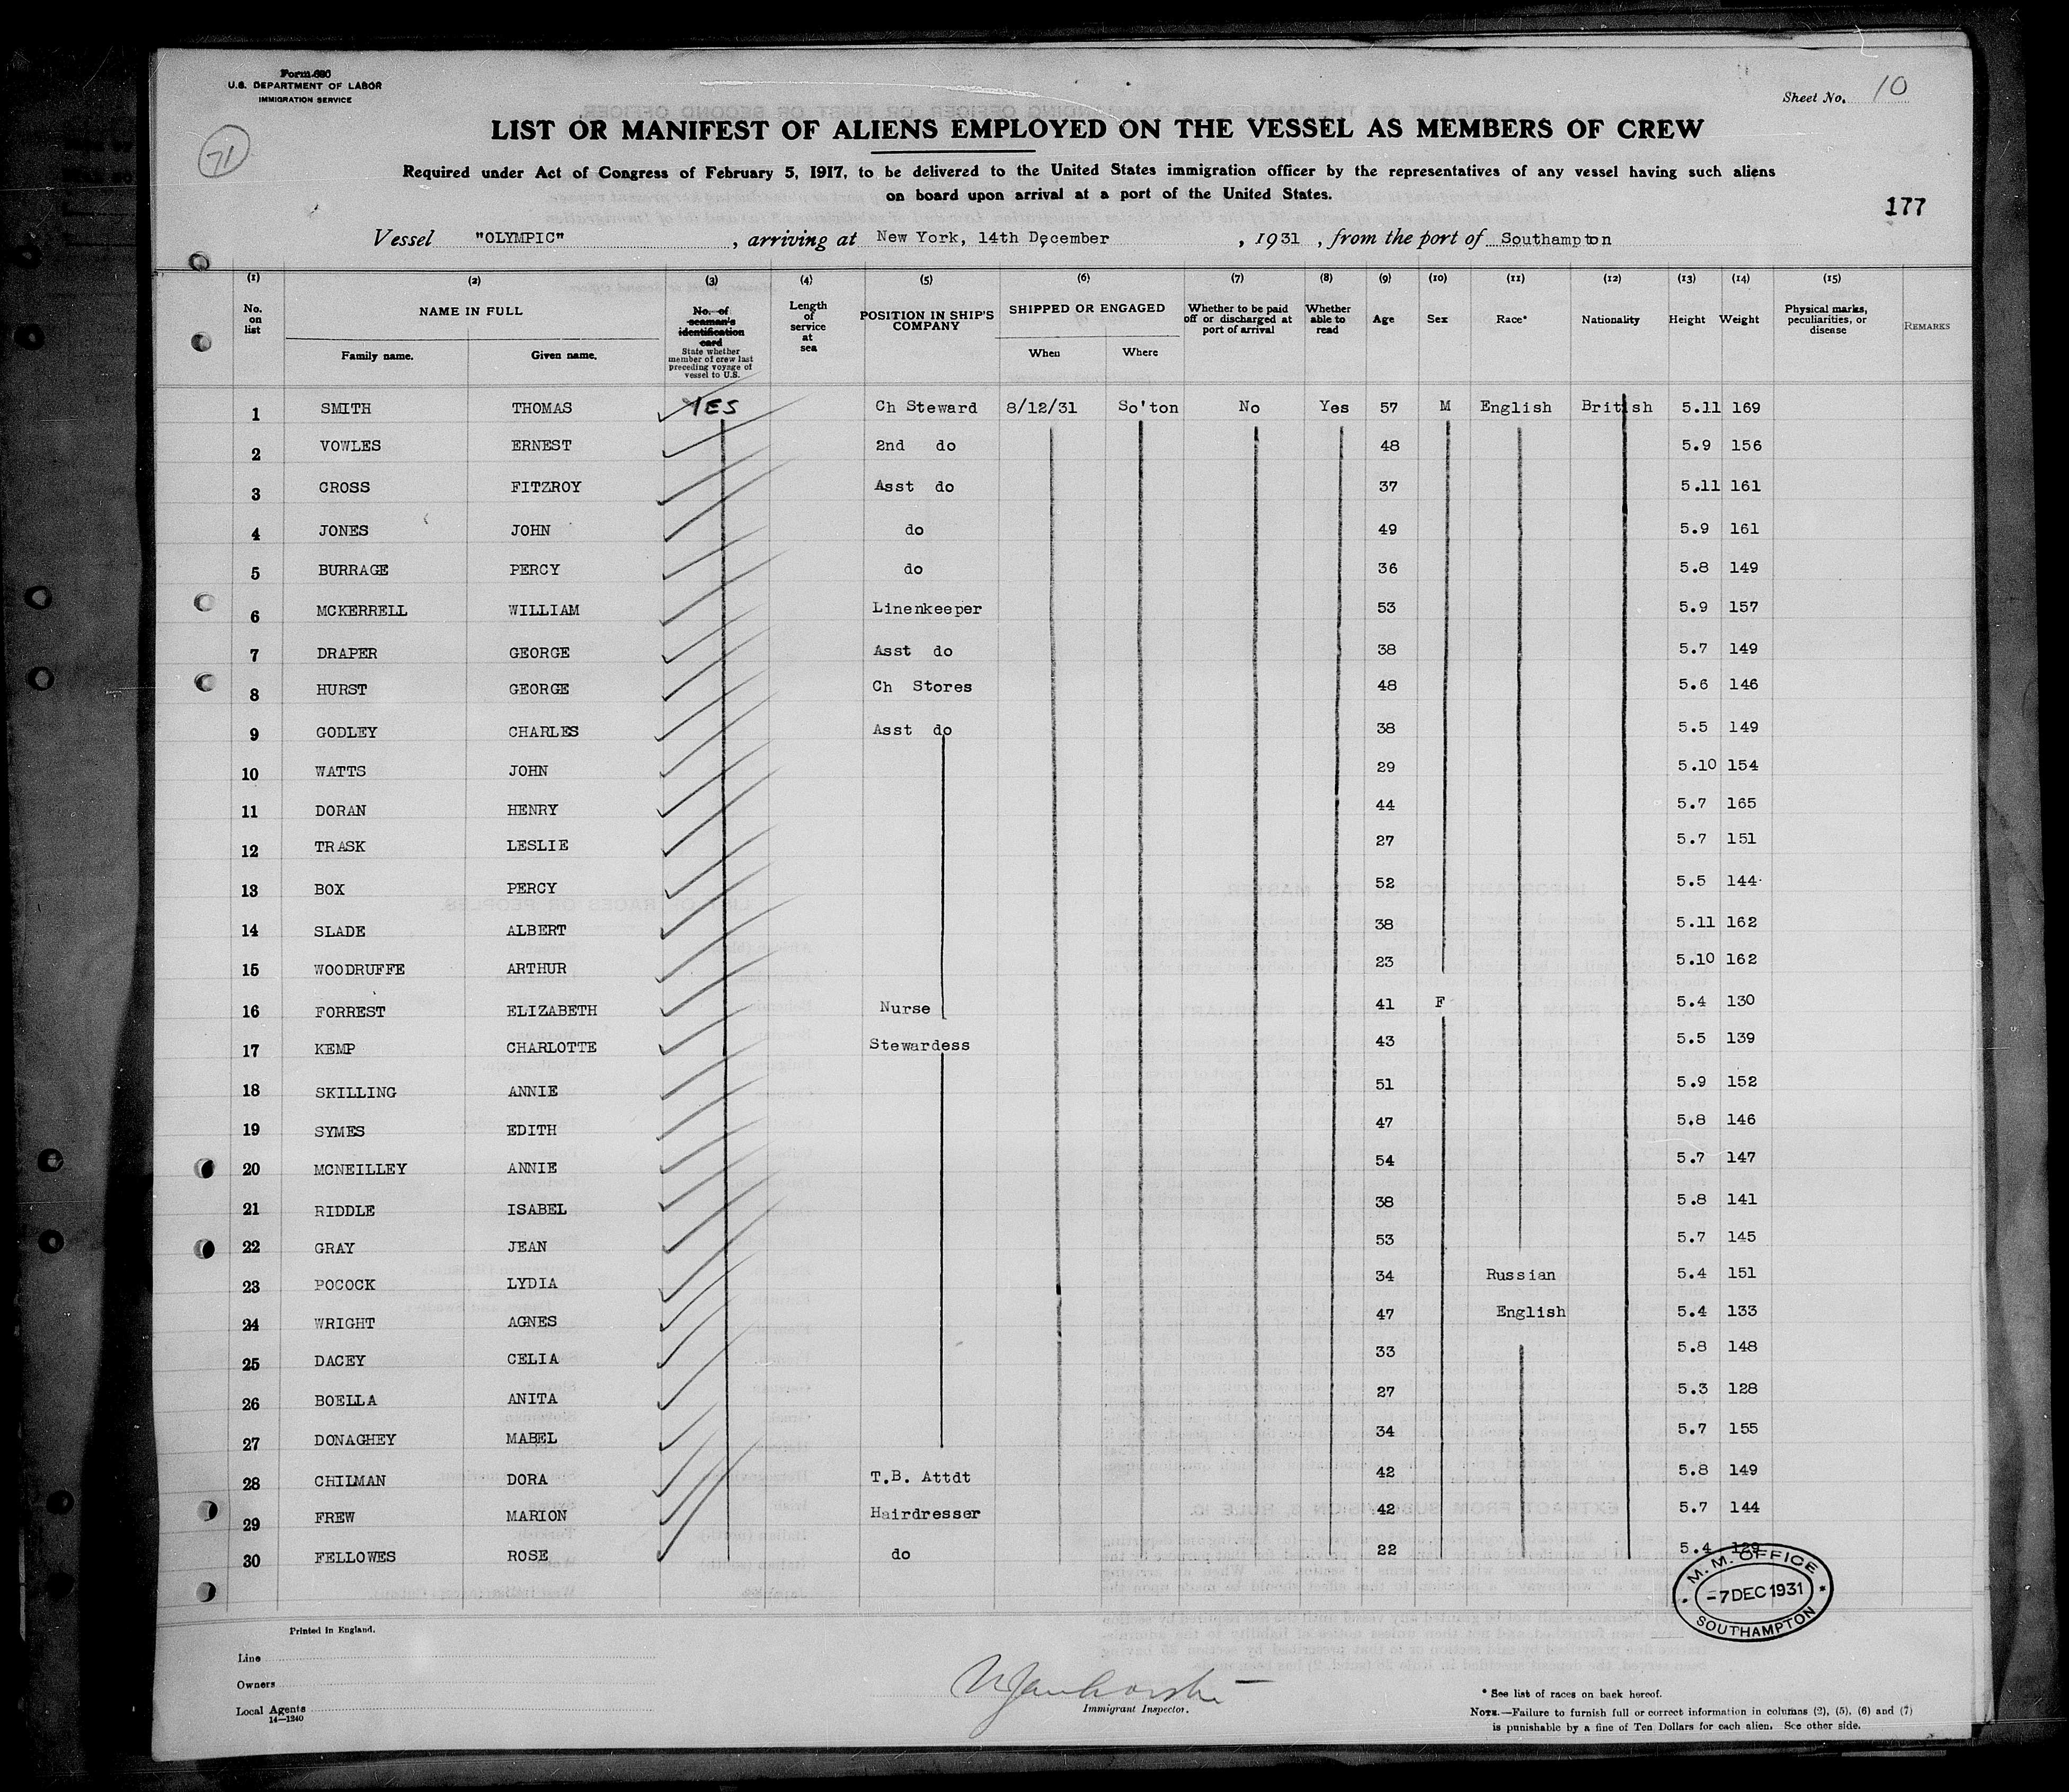 Form 680
U.S. DEPARTMENT OF LABOR
IMMIGRATION SERVICE
Sheet No. 10
71
LIST OR MANIFEST OF ALIENS EMPLOYED ON THE VESSEL AS MEMBERS OF CREW
Required under Act of Congress of February 5, 1917, to be delivered to the United States immigration officer by the representatives of any vessel having such aliens
on board upon arrival at a port of the United States.
177
Vessel "OLYMPIC", arriving at New York, 14th December, 1931, from the port of Southampton
(1) (2) (3) (4) (5) (6) (7) (8) (9) (10) (11) (12) (13) (14) (15)
No. on list NAME IN FULL Family name. Given name. No. of seaman's identification card State whether member of crew last preceding voyage of vessel to U.S. Length of service at sea POSITION IN SHIP'S COMPANY SHIPPED OR ENGAGED When Where Whether to be paid off or discharged at port of arrival Whether able to read Age Sex Race* Nationality Height Weight Physical marks, peculiarities, or disease REMARKS
1 SMITH THOMAS YES Ch Steward 8/12/31 So'ton No Yes 57 M English British 5.11 169
2 VOWLES ERNEST 2nd do 48 5.9 156
3 CROSS FITZROY Asst do 37 5.11 161
4 JONES JOHN do 49 5.9 161
5 BURRAGE PERCY do 36 5.8 149
6 MCKERRELL WILLIAM Linenkeeper 53 5.9 157
7 DRAPER GEORGE Asst do 38 5.7 149
8 HURST GEORGE Ch Stores 48 5.6 146
9 GODLEY CHARLES Asst do 38 5.5 149
10 WATTS JOHN 29 5.10 154
11 DORAN HENRY 44 5.7 165
12 TRASK LESLIE 27 5.7 151
13 BOX PERCY 52 5.5 144
14 SLADE ALBERT 38 5.11 162
15 WOODRUFFE ARTHUR 23 5.10 162
16 FORREST ELIZABETH Nurse 41 F 5.4 130
17 KEMP CHARLOTTE Stewardess 43 5.5 139
18 SKILLING ANNIE 51 5.9 152
19 SYMES EDITH 47 5.8 146
20 MCNEILLEY ANNIE 54 5.7 147
21 RIDDLE ISABEL 38 5.8 141
22 GRAY JEAN 53 5.7 145
23 POCOCK LYDIA 34 Russian 5.4 151
24 WRIGHT AGNES 47 English 5.4 133
25 DACEY CELIA 33 5.8 148
26 BOELLA ANITA 27 5.3 128
27 DONAGHEY MABEL 34 5.7 155
28 CHILMAN DORA T.B. Attdt 42 5.8 149
29 FREW MARION Hairdresser 42 5.7 144
30 FELLOWES ROSE do 22 5.4 129
M.M. OFFICE
-7 DEC 1931
SOUTHAMPTON
Printed in England.
Line
Owners
Local Agents
14—1240
Immigrant Inspector.
* See list of races on back hereof.
NOTE.—Failure to furnish full or correct information in columns (2), (5), (6) and (7)
is punishable by a fine of Ten Dollars for each alien. See other side.